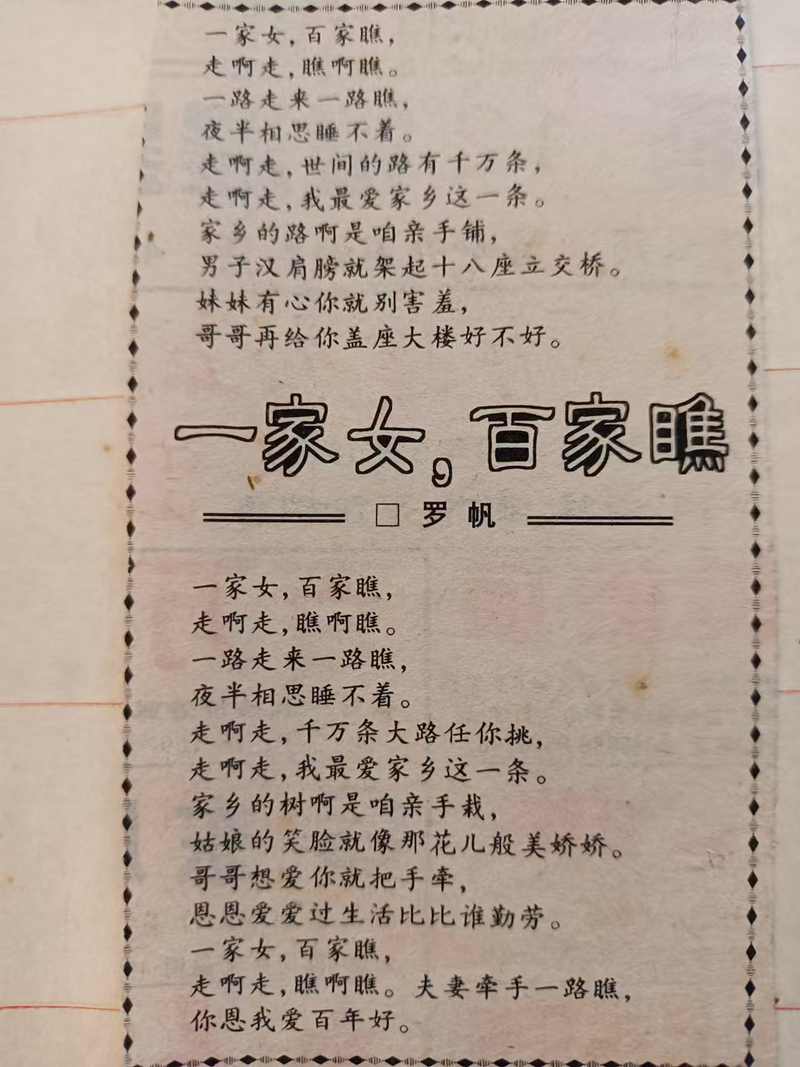 一家女，百家瞧，
走啊走，瞧啊瞧。
一路走来一路瞧，
夜半相思睡不着。
走啊走，世间的路有千万条，
走啊走，我最爱家乡这一条。
家乡的路啊是咱亲手铺，
男子汉肩膀就架起十八座立交桥。
妹妹有心你就别害羞，
哥哥再给你盖座大楼好不好。
一家女，百家瞧
□ 罗帆
一家女，百家瞧，
走啊走，瞧啊瞧。
一路走来一路瞧，
夜半相思睡不着。
走啊走，千万条大路任你挑，
走啊走，我最爱家乡这一条。
家乡的树啊是咱亲手栽，
姑娘的笑脸就像那花儿般美娇娇。
哥哥想爱你就把手牵，
恩恩爱爱过生活比比谁勤劳。
一家女，百家瞧，
走啊走，瞧啊瞧。夫妻牵手一路瞧，
你恩我爱百年好。